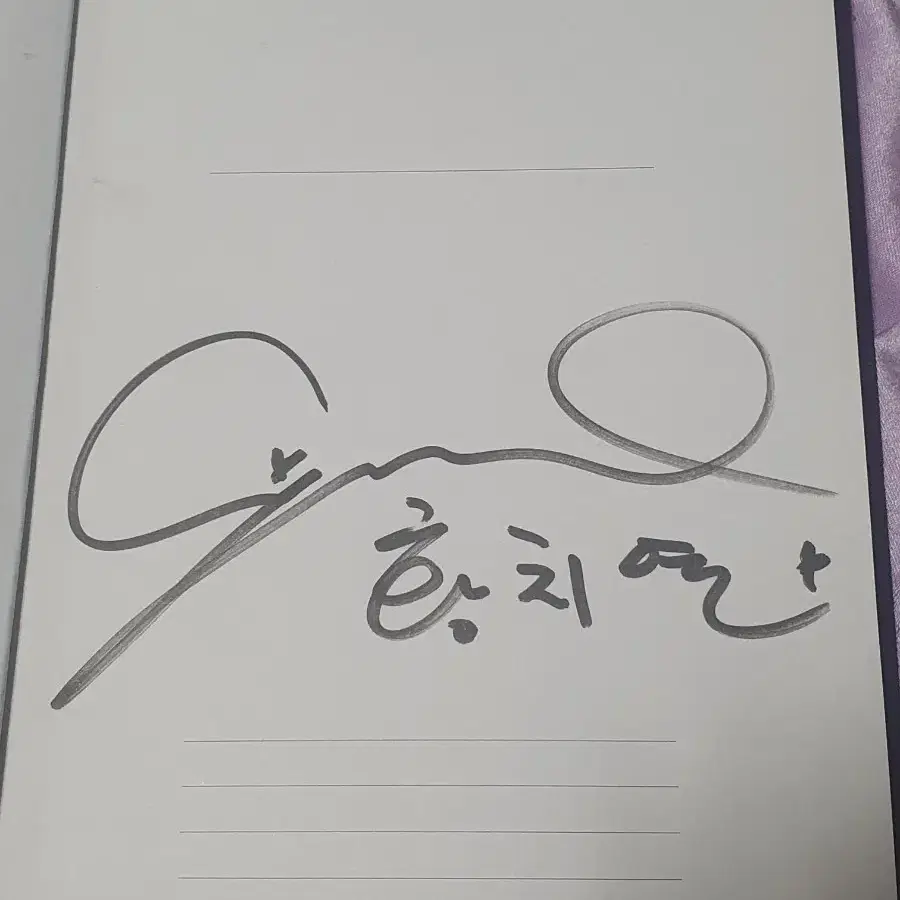 황치열